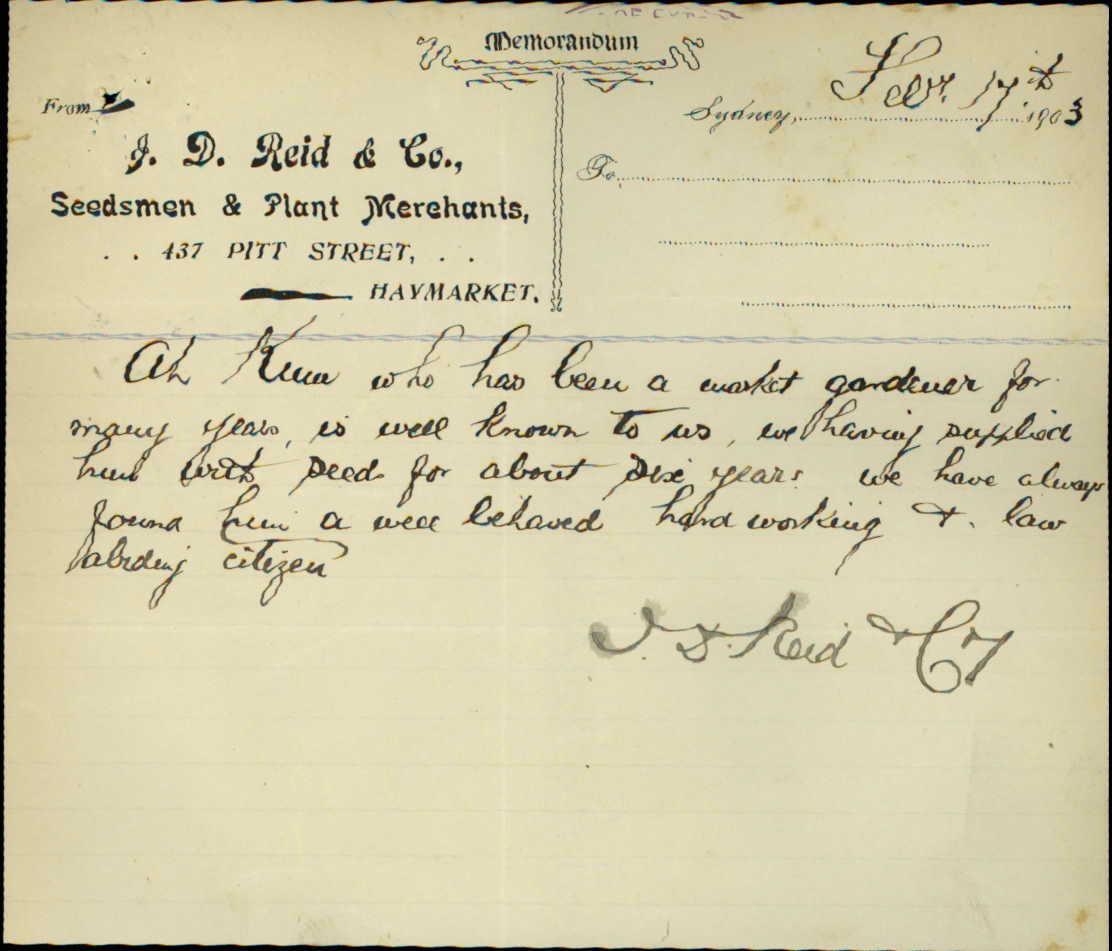 Memorandum
From
Sydney, Febr. 17th 1903
J. D. Reid & Co.,
To
Seedsmen & Plant Merchants,
. . 437 PITT STREET, . .
HAYMARKET.
Ah Kum who has been a market gardener for
many years, is well known to us, we having supplied
him with seed for about six years. we have always
found him a well behaved hard working & law
abiding citizen
J. D. Reid & Cy